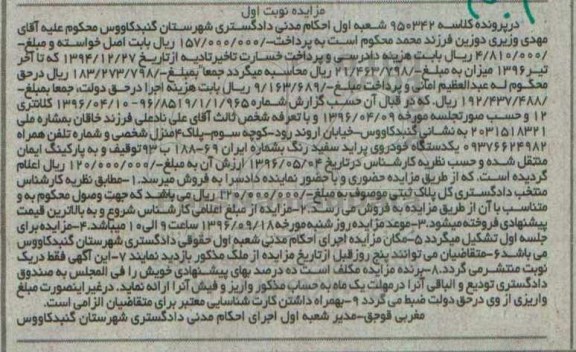 مزایده نوبت اول
درپرونده کلاسه ۹۵۰۳۴۲ شعبه اول احکام مدنی دادگستری شهرستان گنبدکاووس محکوم علیه آقای
مهدی وزیری دوزین فرزند محمد محکوم است به پرداخت-/۱۵۷/۰۰۰/۰۰۰ ریال بابت اصل خواسته و مبلغ-
/۴/۸۱۰/۰۰۰ ریال بابت هزینه دادرسی و پرداخت خسارت تاخیرتادیه از تاریخ ۱۳۹۴/۱۲/۲۷ که تا آخر
تیر ۱۳۹۶ میزان به مبلغ-/۲۱/۴۶۳/۷۹۸ ریال محاسبه میگردد جمعا" بمبلغ-/۱۸۳/۲۷۳/۷۹۸ ریال درحق
محکوم لـه عبدالعظیم امانی و پرداخت مبلغ-/۹/۱۶۳/۶۸۹ ریال بابت هزینه اجرا درحق دولت، جمعا بمبلغ-
/۱۹۲/۴۳۷/۴۸۸ ریال. که در قبال آن حسب گزارش شماره ۹۶/۸۵۱۹/۱/۱/۹۶۵-۱۳۹۶/۰۴/۱۰ کلانتری
۱۲ و حسب صورتجلسه مورخه ۱۳۹۶/۰۴/۰۹ و با تعرفه شخص ثالث آقای علی نادعلی فرزند خاقان بشماره ملی
۲۰۳۱۵۱۸۳۲۱ به نشانی گنبدکاووس-خیابان اروند رود-کوچه سوم-پلاک۴منزل شخصی و شماره تلفن همراه
۰۹۳۷۶۶۲۴۹۸۲ یکدستگاه خودروی پراید سفید رنگ بشماره ایران ۶۹-۱۸۸ ب ۹۳ توقیف و به پارکینگ ایمان
منتقل شده و حسب نظریه کارشناس درتاریخ ۱۳۹۶/۰۵/۰۴ ارزش آن به مبلغ-/۱۲۰/۰۰۰/۰۰۰ ریال اعلام
گردیده است. که از طریق مزایده حضوری و با حضور نماینده دادسرا به فروش میرسد.۱-مطابق نظریه کارشناس
منتخب دادگستری کل پلاک ثبتی موصوف به مبلغ-/۱۲۰/۰۰۰/۰۰۰ ریال می باشد که جهت وصول محکوم به و
متناسب با آن از طریق مزایده به فروش می رسد.۲-مزایده از مبلغ اعلامی کارشناس شروع و به بالاترین قیمت
پیشنهادی فروخته میشود.۳-موعد مزایده روز شنبه مورخه ۱۳۹۶/۰۹/۱۸ ساعت ۹ الی ۱۰ میباشد.۴-مزایده برای
جلسه اول تشکیل میگردد ۵-مکان مزایده اجرای احکام مدنی شعبه اول حقوقی دادگستری شهرستان گنبدکاووس
می باشد۶-متقاضیان می توانند پنج روز قبل از تاریخ مزایده از ملک مذکور بازدید نمایند ۷-این آگهی فقط دریک
نوبت منتشر می گردد.۸-برنده مزایده مکلف است ده درصد بهای پیشنهادی خویش را فی المجلس به صندوق
دادگستری تودیع و الباقی آنرا درمهلت یک ماه به حساب مذکور واریز و فیش آنرا ارائه نماید. درغیر اینصورت مبلغ
واریزی از وی درحق دولت ضبط می گردد ۹-بهمراه داشتن کارت شناسایی معتبر برای متقاضیان الزامی است.
مغربی قوجق-مدیر شعبه اول اجرای احکام مدنی دادگستری شهرستان گنبدکاووس